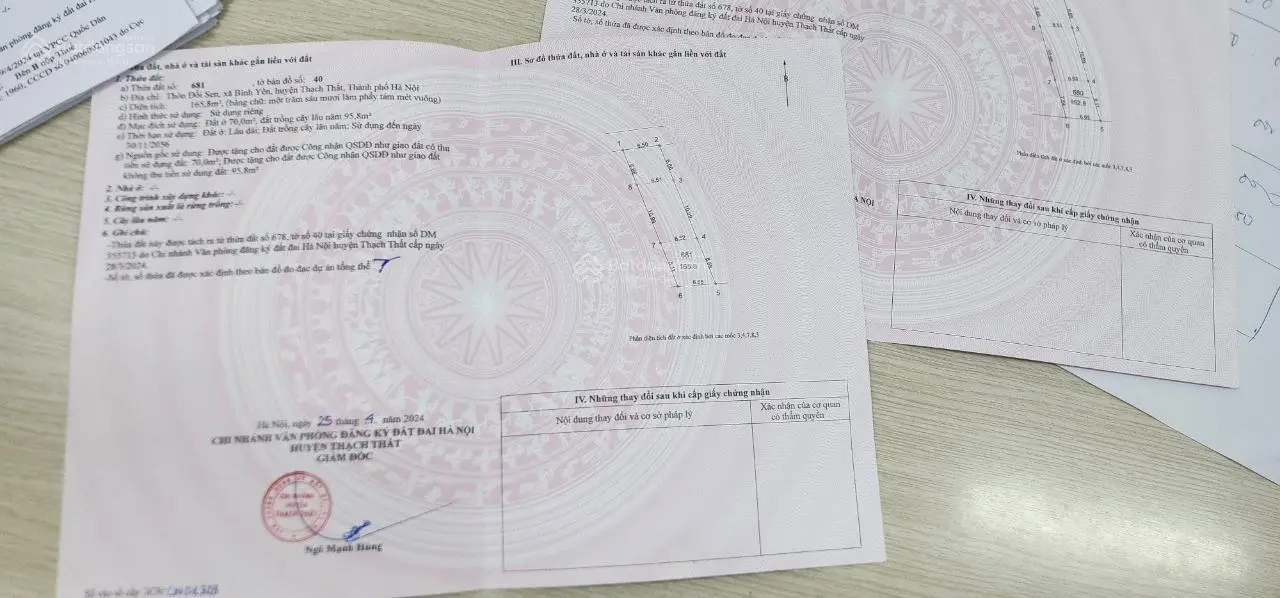 n phòng đăng ký đất đai H
9/4/2024 tại VPCC Quốc Dân
Bên B nộp Thuế
1960, CCCD số 040060021043 do Cục
đất, nhà ở và tài sản khác gắn liền với đất
1. Thửa đất:
a) Thửa đất số: 681 , tờ bản đồ số: 40
b) Địa chỉ: Thôn Đồi Sen, xã Bình Yên, huyện Thạch Thất, Thành phố Hà Nội
c) Diện tích: 165,8m², (bằng chữ: một trăm sáu mươi lăm phẩy tám mét vuông)
d) Hình thức sử dụng: Sử dụng riêng
đ) Mục đích sử dụng: Đất ở 70,0m², đất trồng cây lâu năm 95,8m²
e) Thời hạn sử dụng: Đất ở: Lâu dài; Đất trồng cây lâu năm: Sử dụng đến ngày
30/11/2056
g) Nguồn gốc sử dụng: Được tặng cho đất được Công nhận QSDĐ như giao đất có thu
tiền sử dụng đất: 70,0m²; Được tặng cho đất được Công nhận QSDĐ như giao đất
không thu tiền sử dụng đất: 95,8m²
2. Nhà ở: -/-
3. Công trình xây dựng khác: -/-
4. Rừng sản xuất là rừng trồng: -/-
5. Cây lâu năm: -/-
6. Ghi chú:
-Thửa đất này được tách ra từ thửa đất số 678, tờ số 40 tại giấy chứng nhận số DM
355713 do Chi nhánh Văn phòng đăng ký đất đai Hà Nội huyện Thạch Thất cấp ngày
28/3/2024.
-Số tờ, số thửa đã được xác định theo bản đồ đo đạc dự án tổng thể
Hà Nội, ngày 25 tháng 4 năm 2024
CHI NHÁNH VĂN PHÒNG ĐĂNG KÝ ĐẤT ĐAI HÀ NỘI
HUYỆN THẠCH THẤT
GIÁM ĐỐC
Ngô Mạnh Hùng
III. Sơ đồ thửa đất, nhà ở và tài sản khác gắn liền với đất
B
1
2
6,50
8
6,51
3
7
6,52
4
681
165,8
6
5
Phần diện tích đất ở xác định bởi các mốc 3,4,7,8,3
IV. Những thay đổi sau khi cấp giấy chứng nhận
Nội dung thay đổi và cơ sở pháp lý
Xác nhận của cơ quan
có thẩm quyền
tách ra từ thửa đất số 678, tờ số 40 tại giấy chứng nhận số DM
355713 do Chi nhánh Văn phòng đăng ký đất đai Hà Nội huyện Thạch Thất cấp ngày
28/3/2024.
Số tờ, số thửa đã được xác định theo bản đồ đo
8
6,51
3
7
4
680
162,8
6
5
Phần diện tích đất ở xác định bởi các mốc 3,4,7,8,3
À NỘI
IV. Những thay đổi sau khi cấp giấy chứng nhận
Nội dung thay đổi và cơ sở pháp lý
Xác nhận của cơ quan
có thẩm quyền